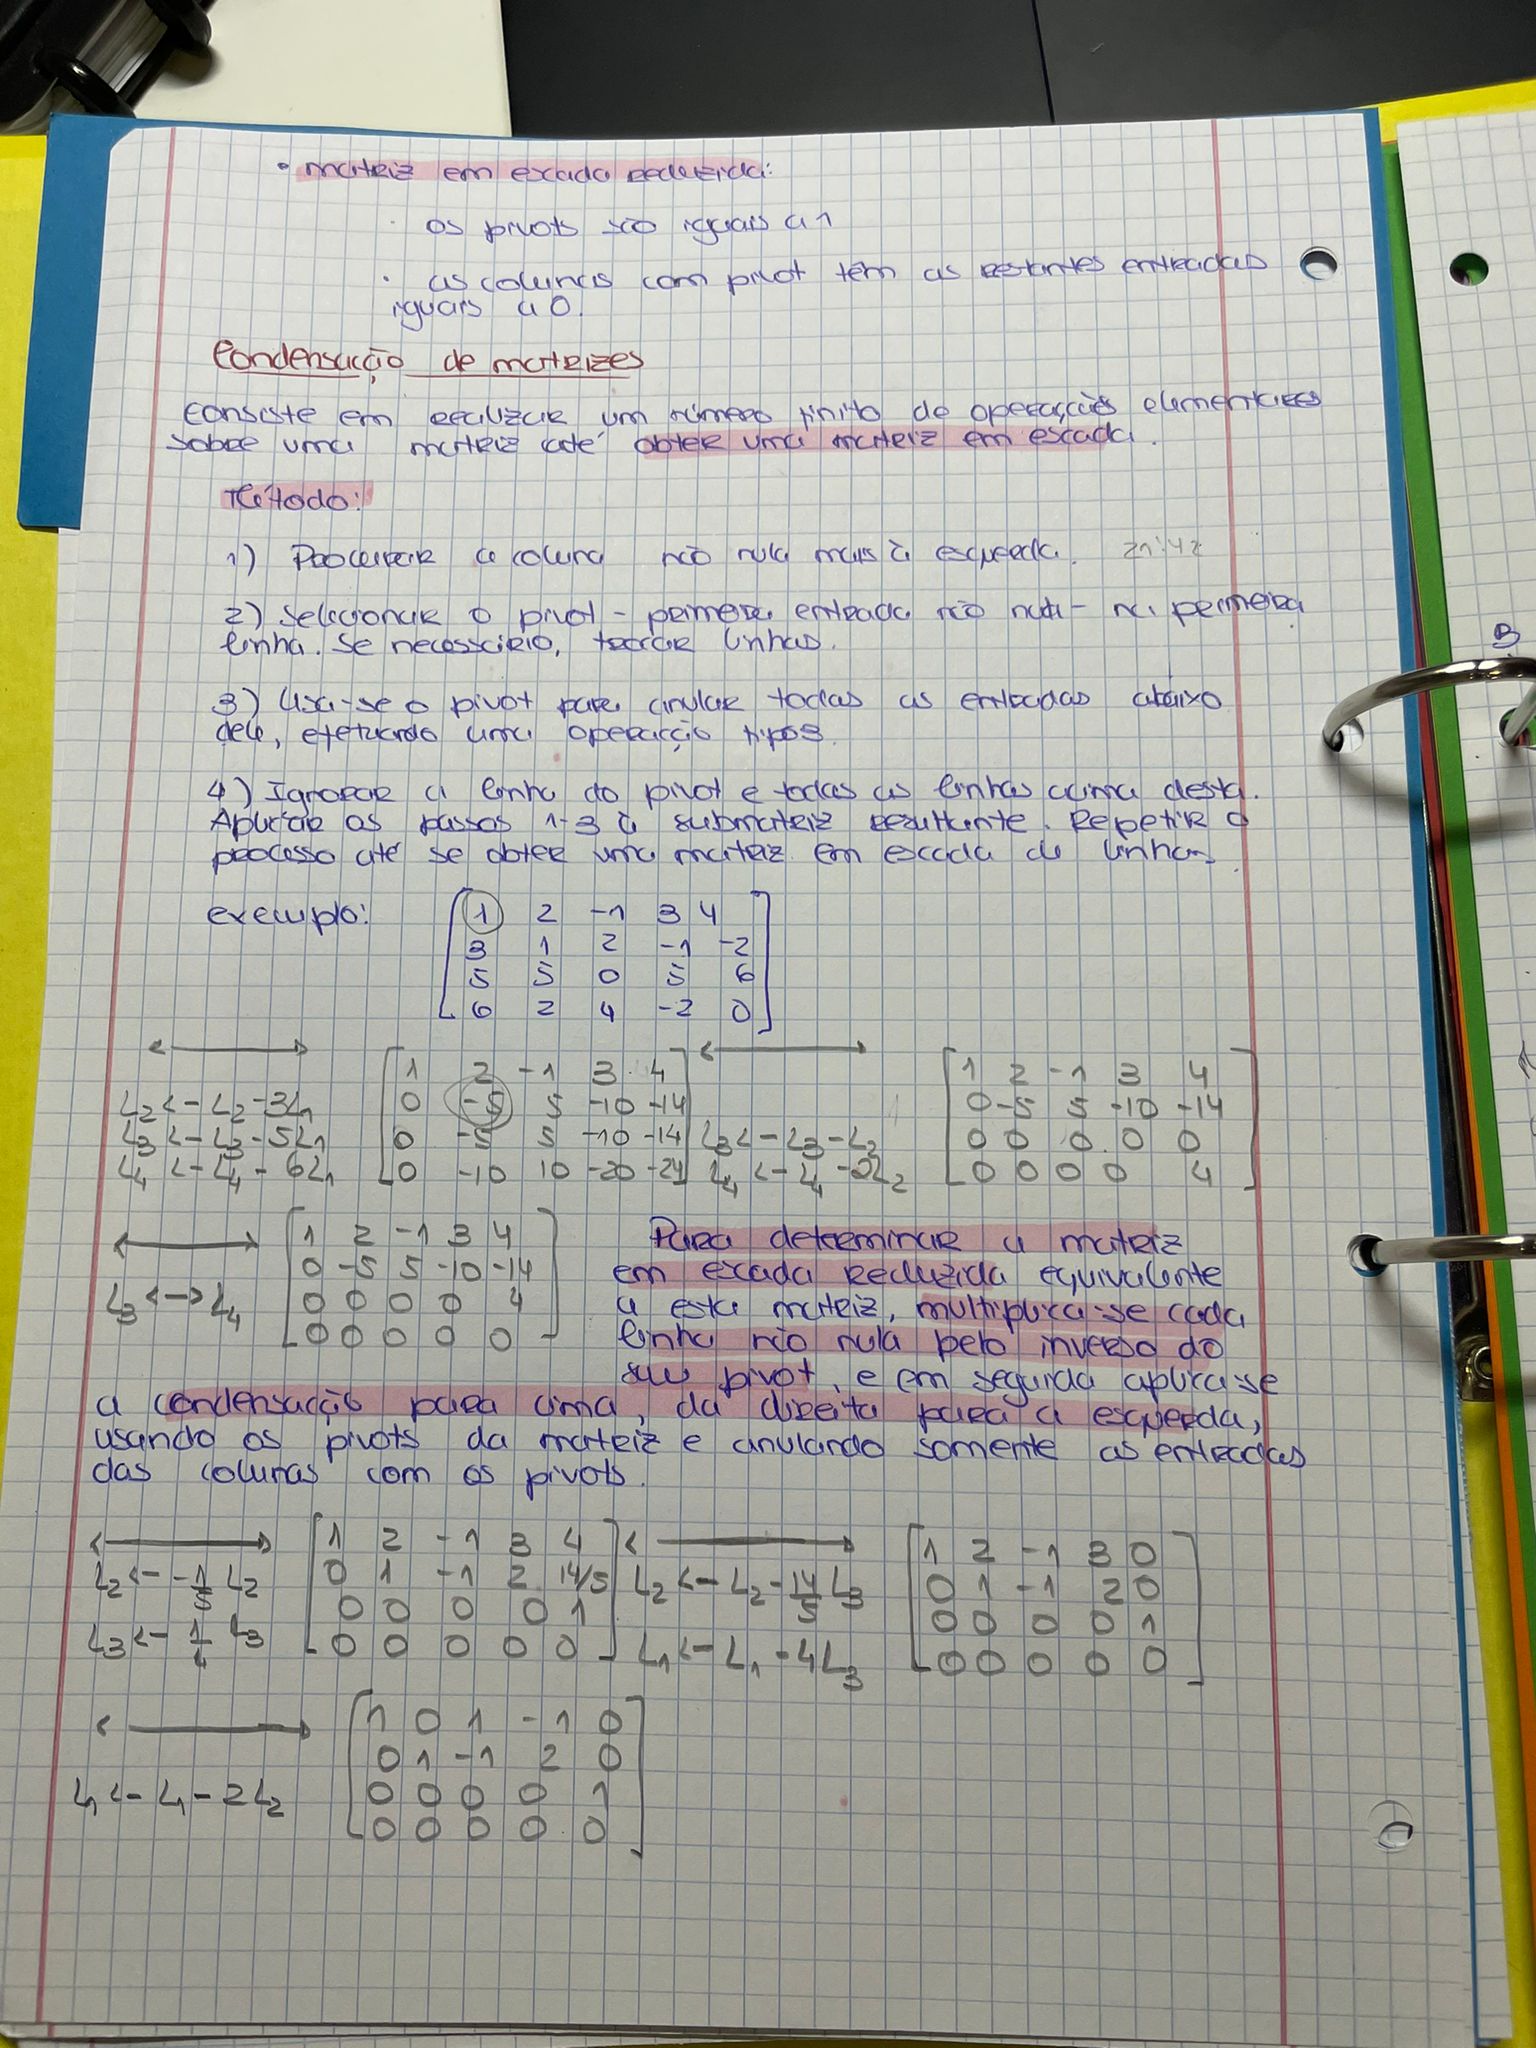 • matriz em escada reduzida:
· os pivots são iguais a 1
· as colunas com pivot têm as restantes entradas
iguais a 0.
Condensação de matrizes
Consiste em realizar um número finito de operações elementares
sobre uma matriz até obter uma matriz em escada.
Método:
1) Procurar a coluna não nula mais à esquerda. 21:42
2) Selecionar o pivot - primeira entrada não nula - na primeira
linha. Se necessário, trocar linhas.
3) Usa-se o pivot para anular todas as entradas abaixo
dele, efetuando uma operação tipo 3.
4) Ignorar a linha do pivot e todas as linhas acima desta.
Aplicar os passos 1-3 à submatriz resultante. Repetir o
processo até se obter uma matriz em escada de linhas.
exemplo:
1 2 -1 3 4
3 1 2 -1 -2
5 5 0 5 6
6 2 4 -2 0
<——>
L2 <- L2 - 3L1
L3 <- L3 - 5L1
L4 <- L4 - 6L1
1 2 -1 3 4
0 -5 5 -10 -14
0 -5 5 -10 -14
0 -10 10 -20 -24
<——>
L3 <- L3 - L2
L4 <- L4 - 2L2
1 2 -1 3 4
0 -5 5 -10 -14
0 0 0 0 0
0 0 0 0 4
<——>
L3 <-> L4
1 2 -1 3 4
0 -5 5 -10 -14
0 0 0 0 4
0 0 0 0 0
Para determinar a matriz
em escada reduzida equivalente
a esta matriz, multiplica-se cada
linha não nula pelo inverso do
seu pivot, e em seguida aplica-se
a condensação para cima, da direita para a esquerda,
usando os pivots da matriz e anulando somente as entradas
das colunas com os pivots.
<——>
L2 <- -1/5 L2
L3 <- 1/4 L3
1 2 -1 3 4
0 1 -1 2 14/5
0 0 0 0 1
0 0 0 0 0
<——>
L2 <- L2 - 14/5 L3
L1 <- L1 - 4L3
1 2 -1 3 0
0 1 -1 2 0
0 0 0 0 1
0 0 0 0 0
<——>
L1 <- L1 - 2L2
1 0 1 -1 0
0 1 -1 2 0
0 0 0 0 1
0 0 0 0 0
B